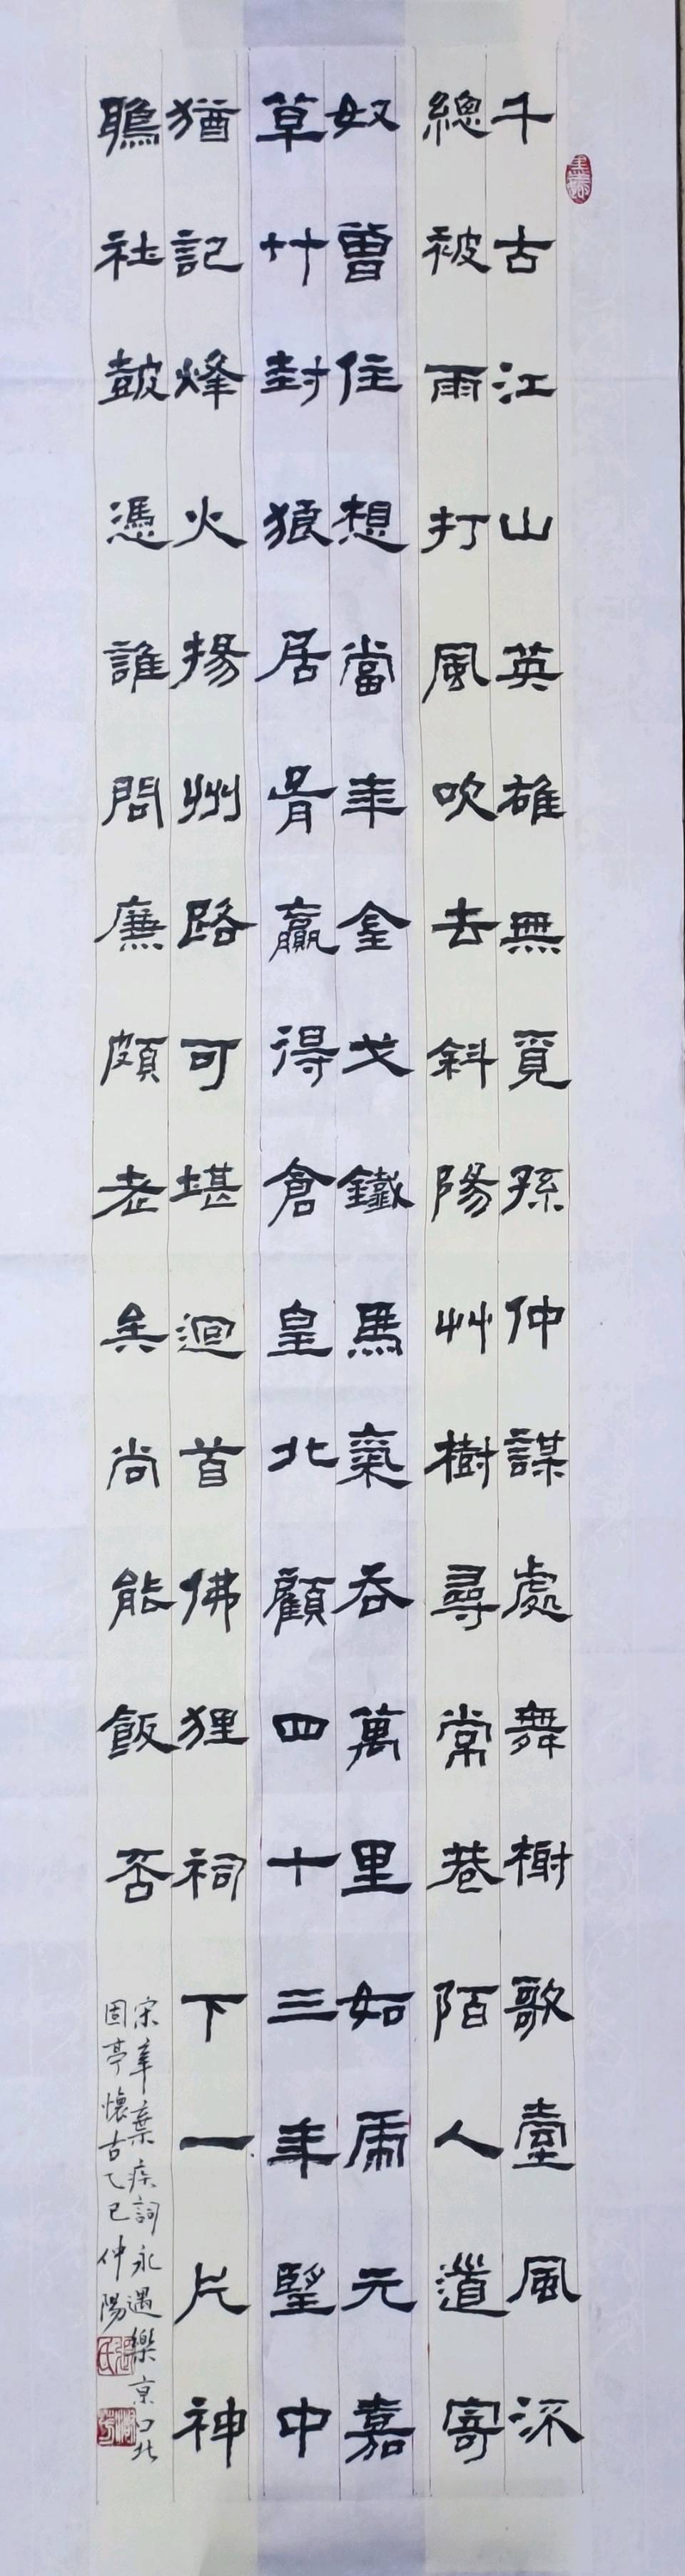 千古江山英雄無覓孫仲謀處舞榭歌臺風流
總被雨打風吹去斜陽艸樹尋常巷陌人道寄
奴曾住想當年金戈鐵馬氣吞萬里如虎元嘉
草艸封狼居胥贏得倉皇北顧四十三年望中
猶記烽火揚州路可堪迴首佛狸祠下一片神
鴉社鼓憑誰問廉頗老矣尚能飯否
宋辛棄疾詞永遇樂京口北
固亭懷古乙巳仲陽